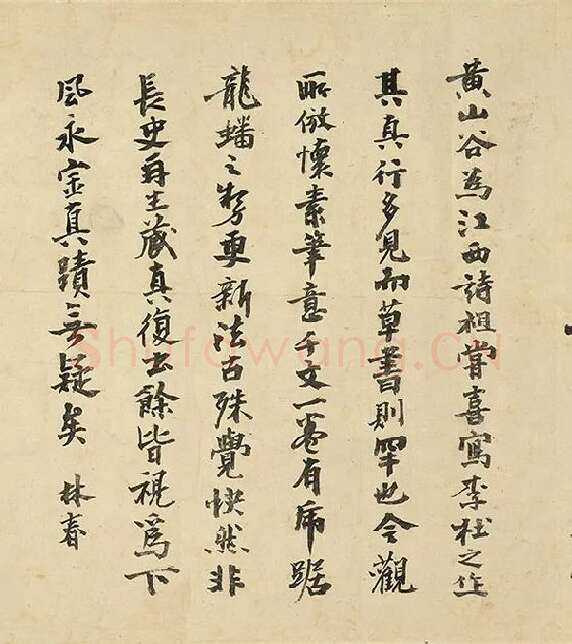 黄山谷為江西詩祖嘗喜寫李杜之作
其真行多見而草書則罕也今觀
所倣懷素筆意千文一卷有席踞
龍蟠之勢更新法古殊覺快然非
長史再生藏真復出餘皆視為下
風永定真蹟無疑矣 林春
Shufawang.CN